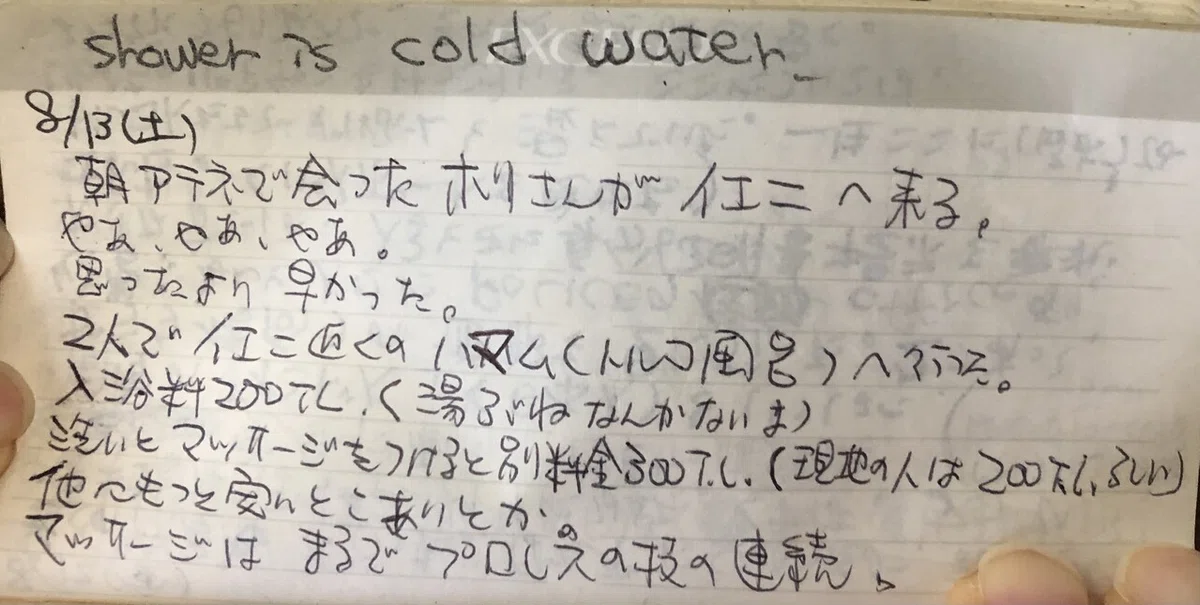 shower is cold water
8/13(土)
朝アテネで会ったホリさんがイエニへ来る。
やあ、やあ、やあ。
思ったより早かった。
2人でイエニ近くのハマム(トルコ風呂)へ行った。
入浴料200TL.(湯ぶねなんかないよ)
洗いとマッサージをつけると別料金300TL.(現地の人は200TLらしい)
他にもっと安いとこありとか。
マッサージはまるでプロレスの技の連続。